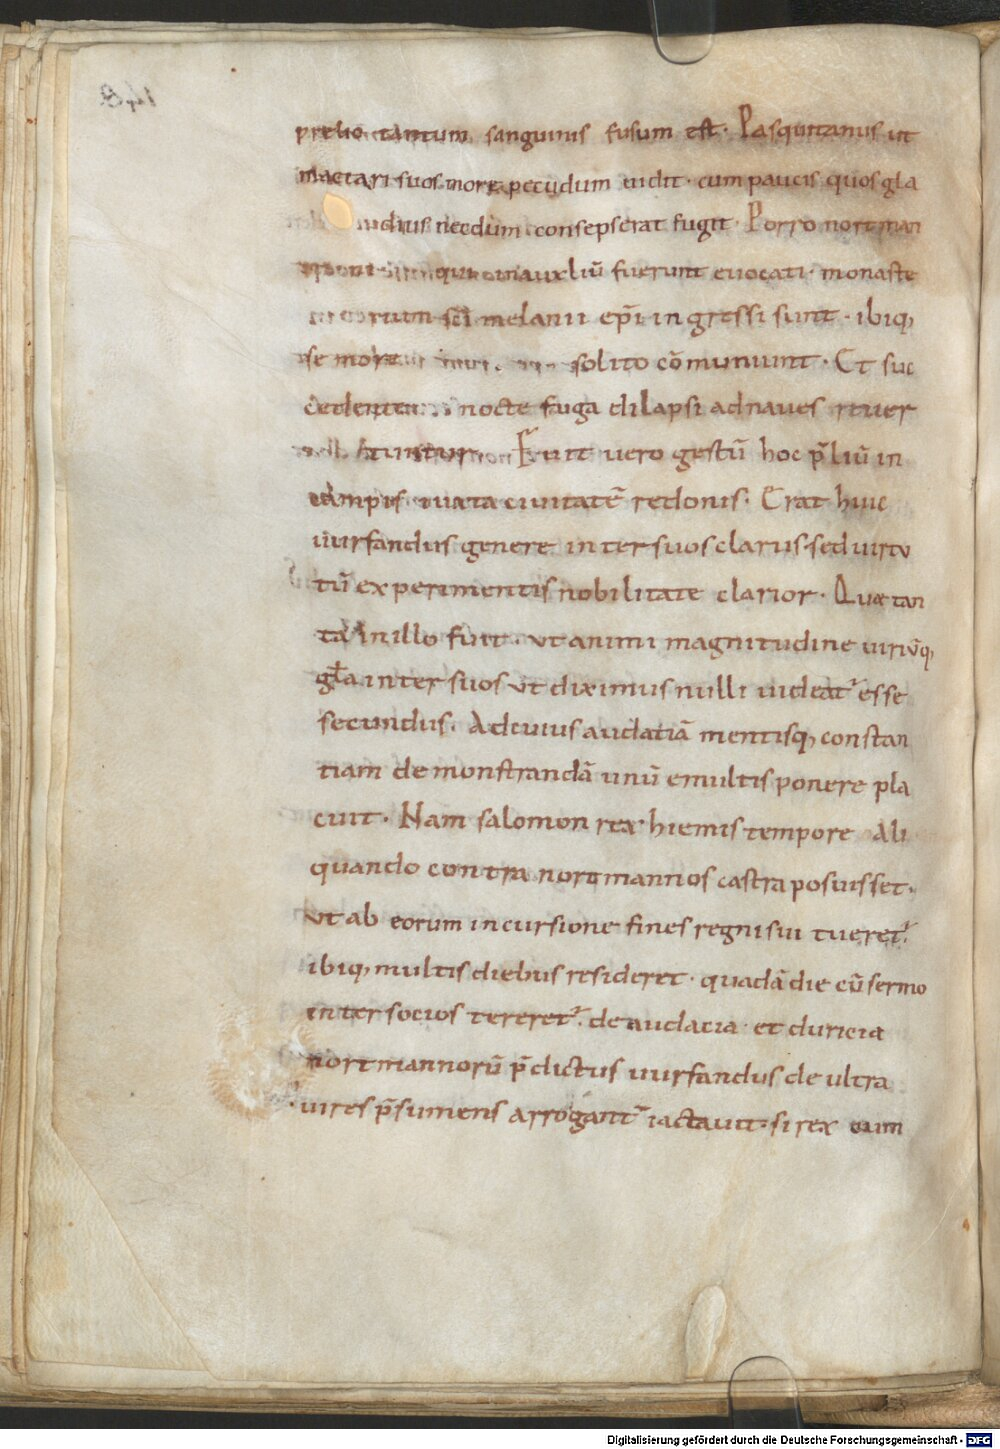 prelio tantum sanguinis fusum est. Pasquitanus ut
mactari suos more pecudum uidit. cum paucis quos gla
dius necdum consepserat fugit. Porro nortman
ni qui in auxiliū fuerunt euocati. monaste
rium sc̄i melanii ep̄i ingressi sunt. ibiq;
se more solito cōmuniunt. Et suc
cedente nocte fuga dilapsi ad naues reuer
tuntur. Fuit uero gestū hoc p̄liū in
campis iuxta ciuitatē redonis. Erat huic
uurfandus genere inter suos clarus. sed uirtu
tū experimentis nobilitate clarior. Quae tan
ta in illo fuit. ut animi magnitudine uiriūq;
gl̄a inter suos ut diximus nulli uideat᷑ esse
secundus. Ad cuius audatiā mentisq; constan
tiam demonstrandā unū e multis ponere pla
cuit. Nam salomon rex hiemis tempore ali
quando contra nortmannos castra posuisset.
ut ab eorum incursione fines regni sui tueret᷑.
ibiq; multis diebus resideret. quadā die cū sermo
inter socios tereret᷑. de audacia et duricia
nortmannorū p̄dictus uurfandus de ultra
uires p̄sumens arrogant᷑ iactauit. si rex cum
148
Digitalisierung gefördert durch die Deutsche Forschungsgemeinschaft - DFG